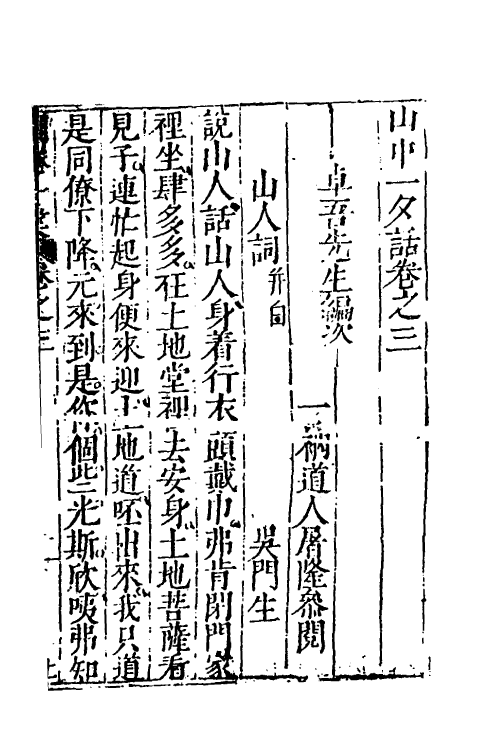 山中一夕話卷之三
卓吾先生編次
一衲道人屠隆叅閱
山人詞并白
吳門生
說山人話山人身着行衣頭戴巾弗肯閉門家
裡坐肆多多在土地堂裡去安身土地菩薩看
見子連忙起身便來迎土地道呸出來我只道
是同僚下降元來到是你個些光斯欣咦弗知